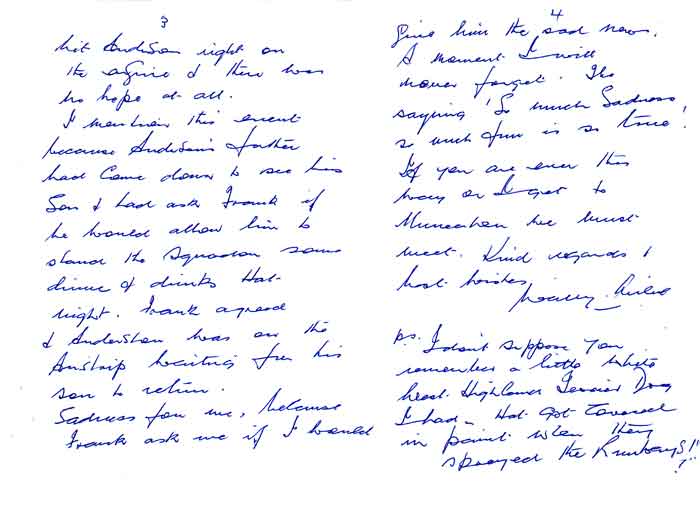 3
hit Anderson right on
the engine & there was
no hope at all.
I mention this event
because Anderson's father
had come down to see his
Son & had ask Frank if
he would allow him to
stand the Squadron some
dinner & drinks that
night. Frank agreed
& Anderson was on the
Airstrip waiting for his
son to return.
Sadness for me, because
Frank ask me if I would
4
give him the sad news.
A moment I will
never forget. The
saying 'So much Sadness,
so much fun is so true!
If you are ever this
way or I get to
we must
meet. Kind regards &
best wishes
ps. I don't suppose you
remember a little white
West Highland Terrier Dog
I had - that got covered
in paint when they
sprayed the Runways!!